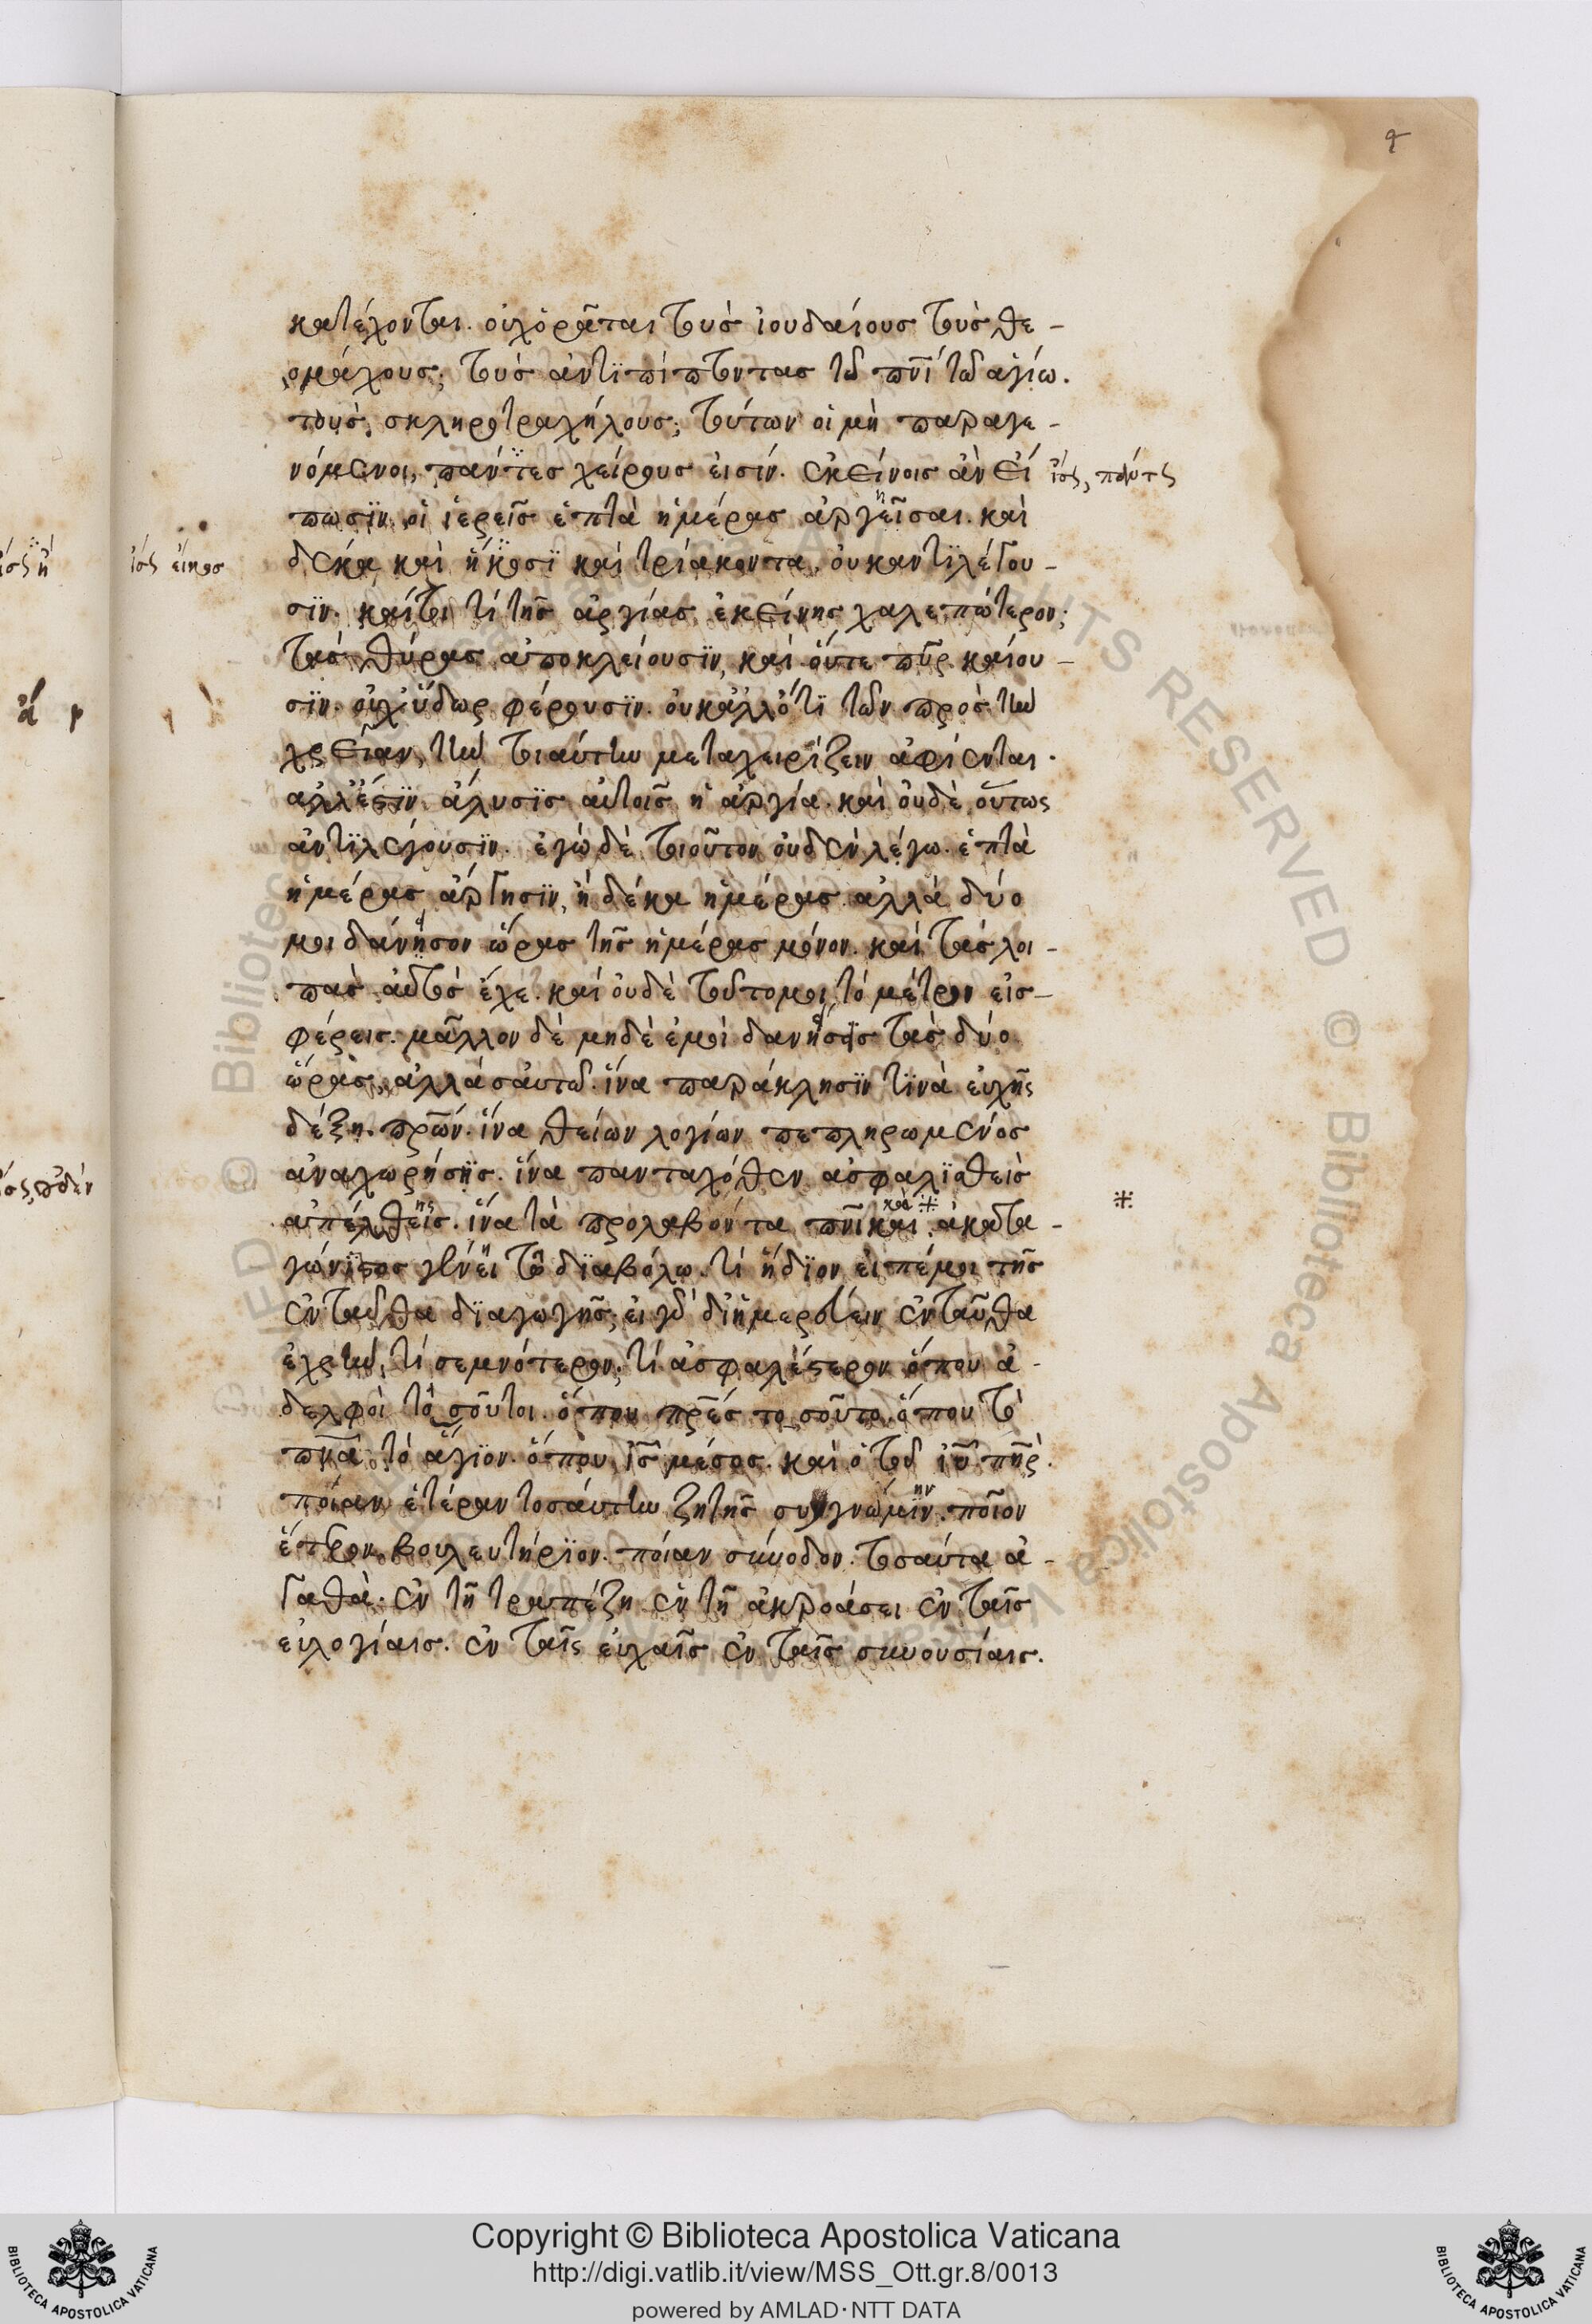 κατέχονται. οὐχ ὁρᾶται τοὺς ἰουδαίους τοὺς θε-
ομάχους; τοὺς ἀντϊπίπτοντας τῶ πνῒ τῶ ἁγίω.
τοὺς σκληροτραχήλους; τούτων οἱ μὴ παραγε-
νόμενοι, πάντες χείρους εἰσίν. ἐκείνοις ἂν εἴ
πωσϊν οἱ ἱερεῖς ἑπτὰ ἡμέρας ἀργεῖσαι. καὶ
δέκα καὶ ἤκοσϊ καὶ τρίακοντα, οὐκ αντϊλέγου-
σϊν. καίτοι τί τῆς ἀργίας ἐκείνης χαλεπώτερον;
τὰς θύρας ἀποκλείουσϊν, καὶ οὔτε πῦρ καίου-
σϊν. οὐχ ὕδωρ φέρουσϊν. οὐκ ἄλλό τϊ τῶν πρὸς τὴν
χρείαν, τὴν τοιαύτην μεταχειρίζειν ἀφίενται.
αλλ' ἔστϊν ἅλυσϊς αὐτοῖς ἡ ἀργία. καὶ οὐδὲ οὕτως
ἀντϊλέγουσϊν. ἐγὼ δὲ τοιοῦτον οὐδὲν λέγω. ἑπτὰ
ἡμέρας ἄργησϊν, ἢ δέκα ἡμέρας. αλλὰ δύο
μοι δάνησον ὥρας τῆς ἡμέρας μόνον. καὶ τὰς λοι-
πὰς αὐτὸς ἔχε. καὶ οὐδὲ τοῦτο μοι τὸ μέτρον εἰσ-
φέρεις. μᾶλλον δὲ μηδὲ ἐμοὶ δανήσης τὰς δύο
ὥρας, ἀλλὰ σαυτῶ. ἵνα παράκλησϊν τϊνὰ εὐχῆς
δέξη. πρων. ἵνα θείων λογίων πεπληρωμένος
ἀναχωρήσης. ἵνα πανταχόθεν ἀσφαλϊσθεὶς
ἀπέλθεις. ἵνα τὰ προλαβόντα πνϊκὰ. ἀκατα-
γώνϊστος γένη τῶ δϊαβόλω. τί ἥδϊον εἰπέ μοι τῆς
ἐνταῦθα δϊαγωγῆς; εἰ γὰρ διημερεύειν ἐνταῦθα
ἐχρῆν, τί σεμνότερον; τί ἀσφαλέστερον ὅπου ἀ-
δελφοὶ τοσοῦτοι. ὅπου πρες τοσοῦτο. ὅπου τὸ
πνα τὸ ἅγϊον. ὅπου ις μέσος. καὶ ὁ τοῦ ιυ πηρ.
ποίαν ἑτέραν τοσάυτην ζητῆς συγγνώμϊν. ποῖον
ἕτερον βουλευτήρϊον. ποίαν σύνοδον. τοσαῦτα ἀ-
γαθὰ. ἐν τῆ τραπέζη ἐν τῆ ἀκροάσει ἐν ταῖς
εὐλογίαις. ἐν ταῖς εὐχαῖς ἐν ταῖς συνουσίαις.
Copyright © Biblioteca Apostolica Vaticana
http://digi.vatlib.it/view/MSS_Ott.gr.8/0013
powered by AMLAD·NTT DATA